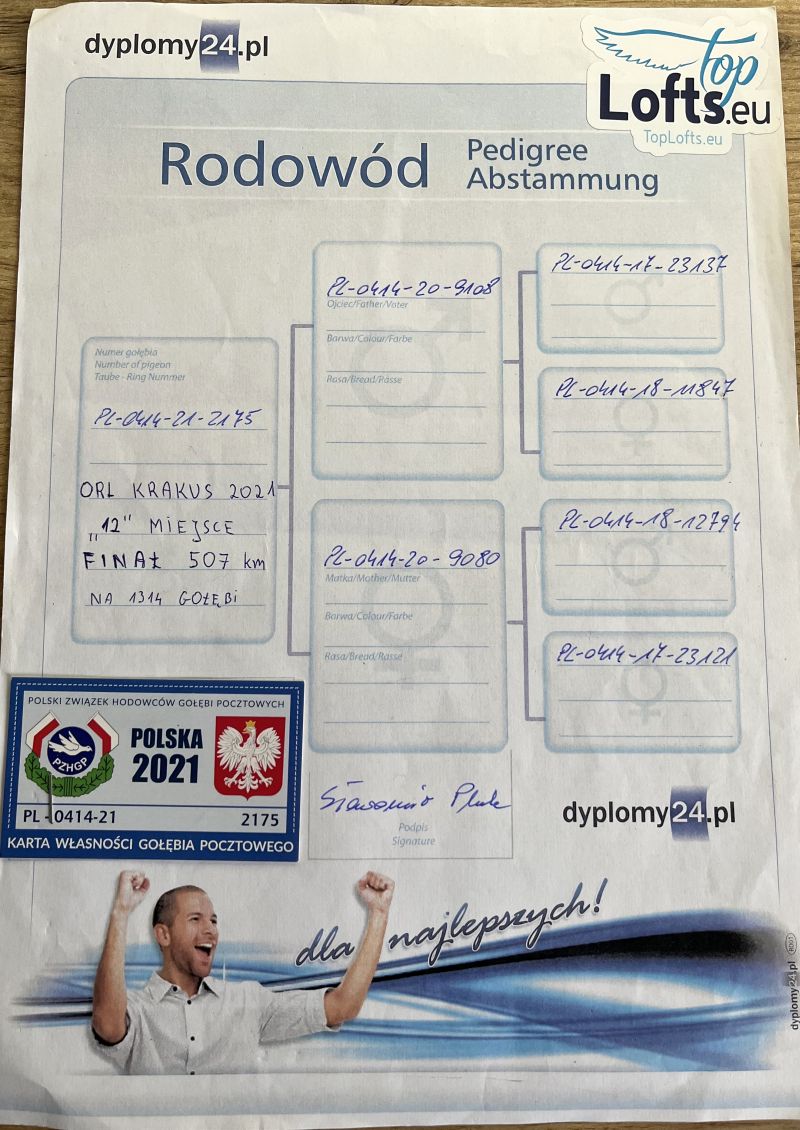 dyplomy24.pl
top
Lofts.eu
TopLofts.eu
Rodowód
Pedigree
Abstammung
Numer gołębia
Number of pigeon
Taube - Ring Nummer
PL-0414-21-2175
ORL KRAKUS 2021
„12" MIEJSCE
FINAŁ 507 km
NA 1314 GOŁĘBI
PL-0414-20-9108
Ojciec/Father/Voter
Barwa/Colour/Farbe
Rasa/Bread/Rasse
PL-0414-20-9080
Matka/Mother/Mutter
Barwa/Colour/Farbe
Rasa/Bread/Rasse
PL-0414-17-23137
PL-0414-18-11847
PL-0414-18-12794
PL-0414-17-23121
POLSKI ZWIĄZEK HODOWCÓW GOŁĘBI POCZTOWYCH
PZHGP
POLSKA
2021
PL - 0414-21
2175
KARTA WŁASNOŚCI GOŁĘBIA POCZTOWEGO
Sławomir
Podpis
Signature
dyplomy24.pl
dla najlepszych!
dyplomy24.pl